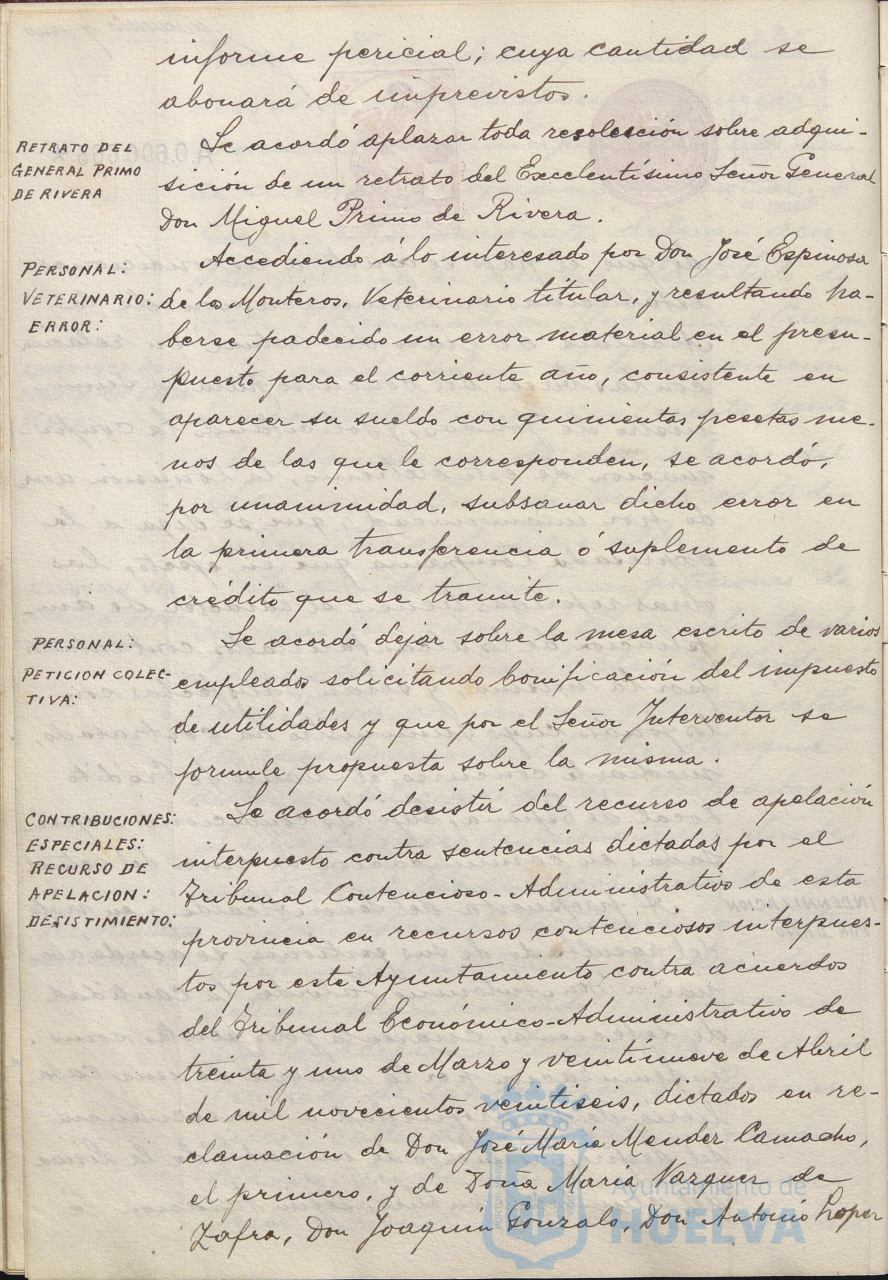 informe pericial; cuya cantidad se
abonará de imprevistos.
RETRATO DEL
GENERAL PRIMO
DE RIVERA
Se acordó aplazar toda resolución sobre adqui-
sición de un retrato del Excelentísimo Señor General
Don Miguel Primo de Rivera.
PERSONAL:
VETERINARIO:
ERROR:
Accediendo á lo interesado por Don José Espinosa
de los Monteros, Veterinario titular, y resultando ha-
berse padecido un error material en el presu-
puesto para el corriente año, consistente en
aparecer su sueldo con quinientas pesetas me-
nos de las que le corresponden, se acordó,
por unanimidad, subsanar dicho error en
la primera transferencia ó suplemento de
crédito que se tramite.
PERSONAL:
PETICION COLEC-
TIVA:
Se acordó dejar sobre la mesa escrito de varios
empleados solicitando bonificación del impuesto
de utilidades y que por el Señor Interventor se
formule propuesta sobre la misma.
CONTRIBUCIONES:
ESPECIALES:
RECURSO DE
APELACION:
DESISTIMIENTO:
Se acordó desistir del recurso de apelación
interpuesto contra sentencias dictadas por el
Tribunal Contencioso-Administrativo de esta
provincia en recursos contenciosos interpues-
tos por este Ayuntamiento contra acuerdos
del Tribunal Económico-Administrativo de
treinta y uno de Marzo y veintinueve de Abril
de mil novecientos veintiseis, dictados en re-
clamación de Don José María Mendez Camacho,
el primero, y de Doña María Vazquez de
Zafra, Don Joaquín Gonzalo, Don Antonio Lopez
Ayuntamiento de
HUELVA